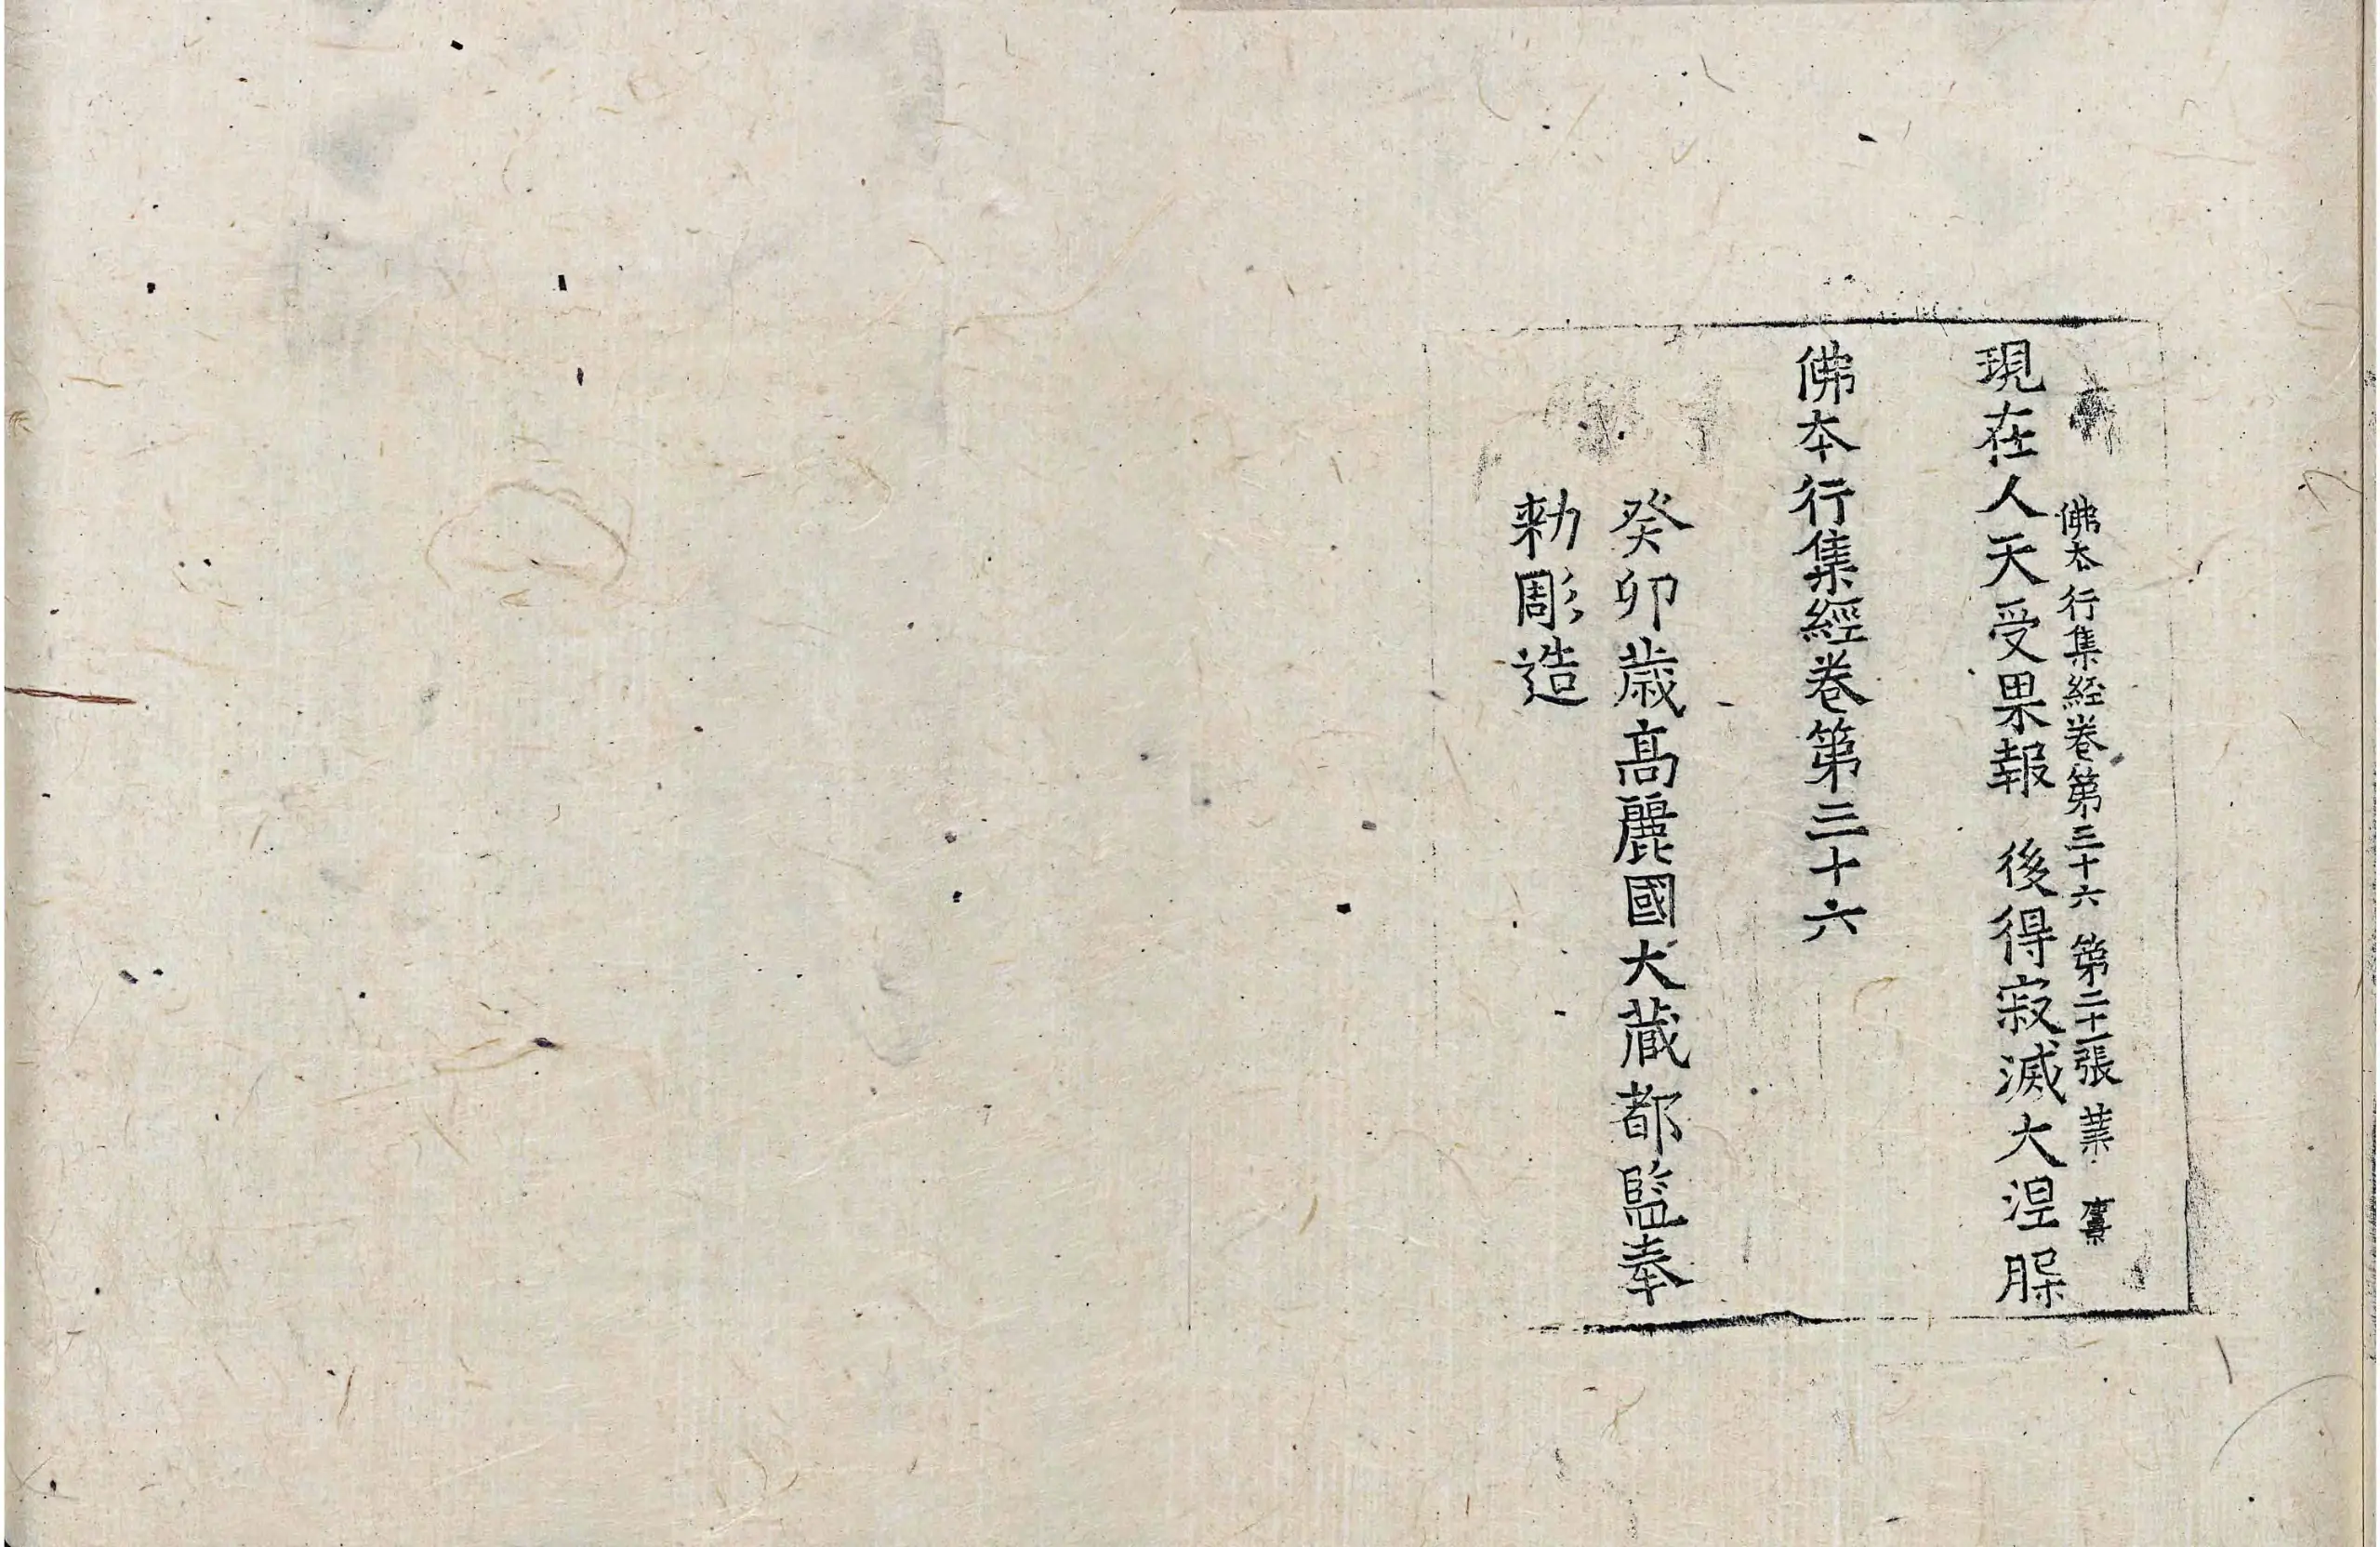 佛本行集経卷第三十六 第二十一張 業
現在人天受果報 後得寂滅大涅槃
佛本行集經卷第三十六
癸卯歳髙麗國大藏都監奉
勅彫造